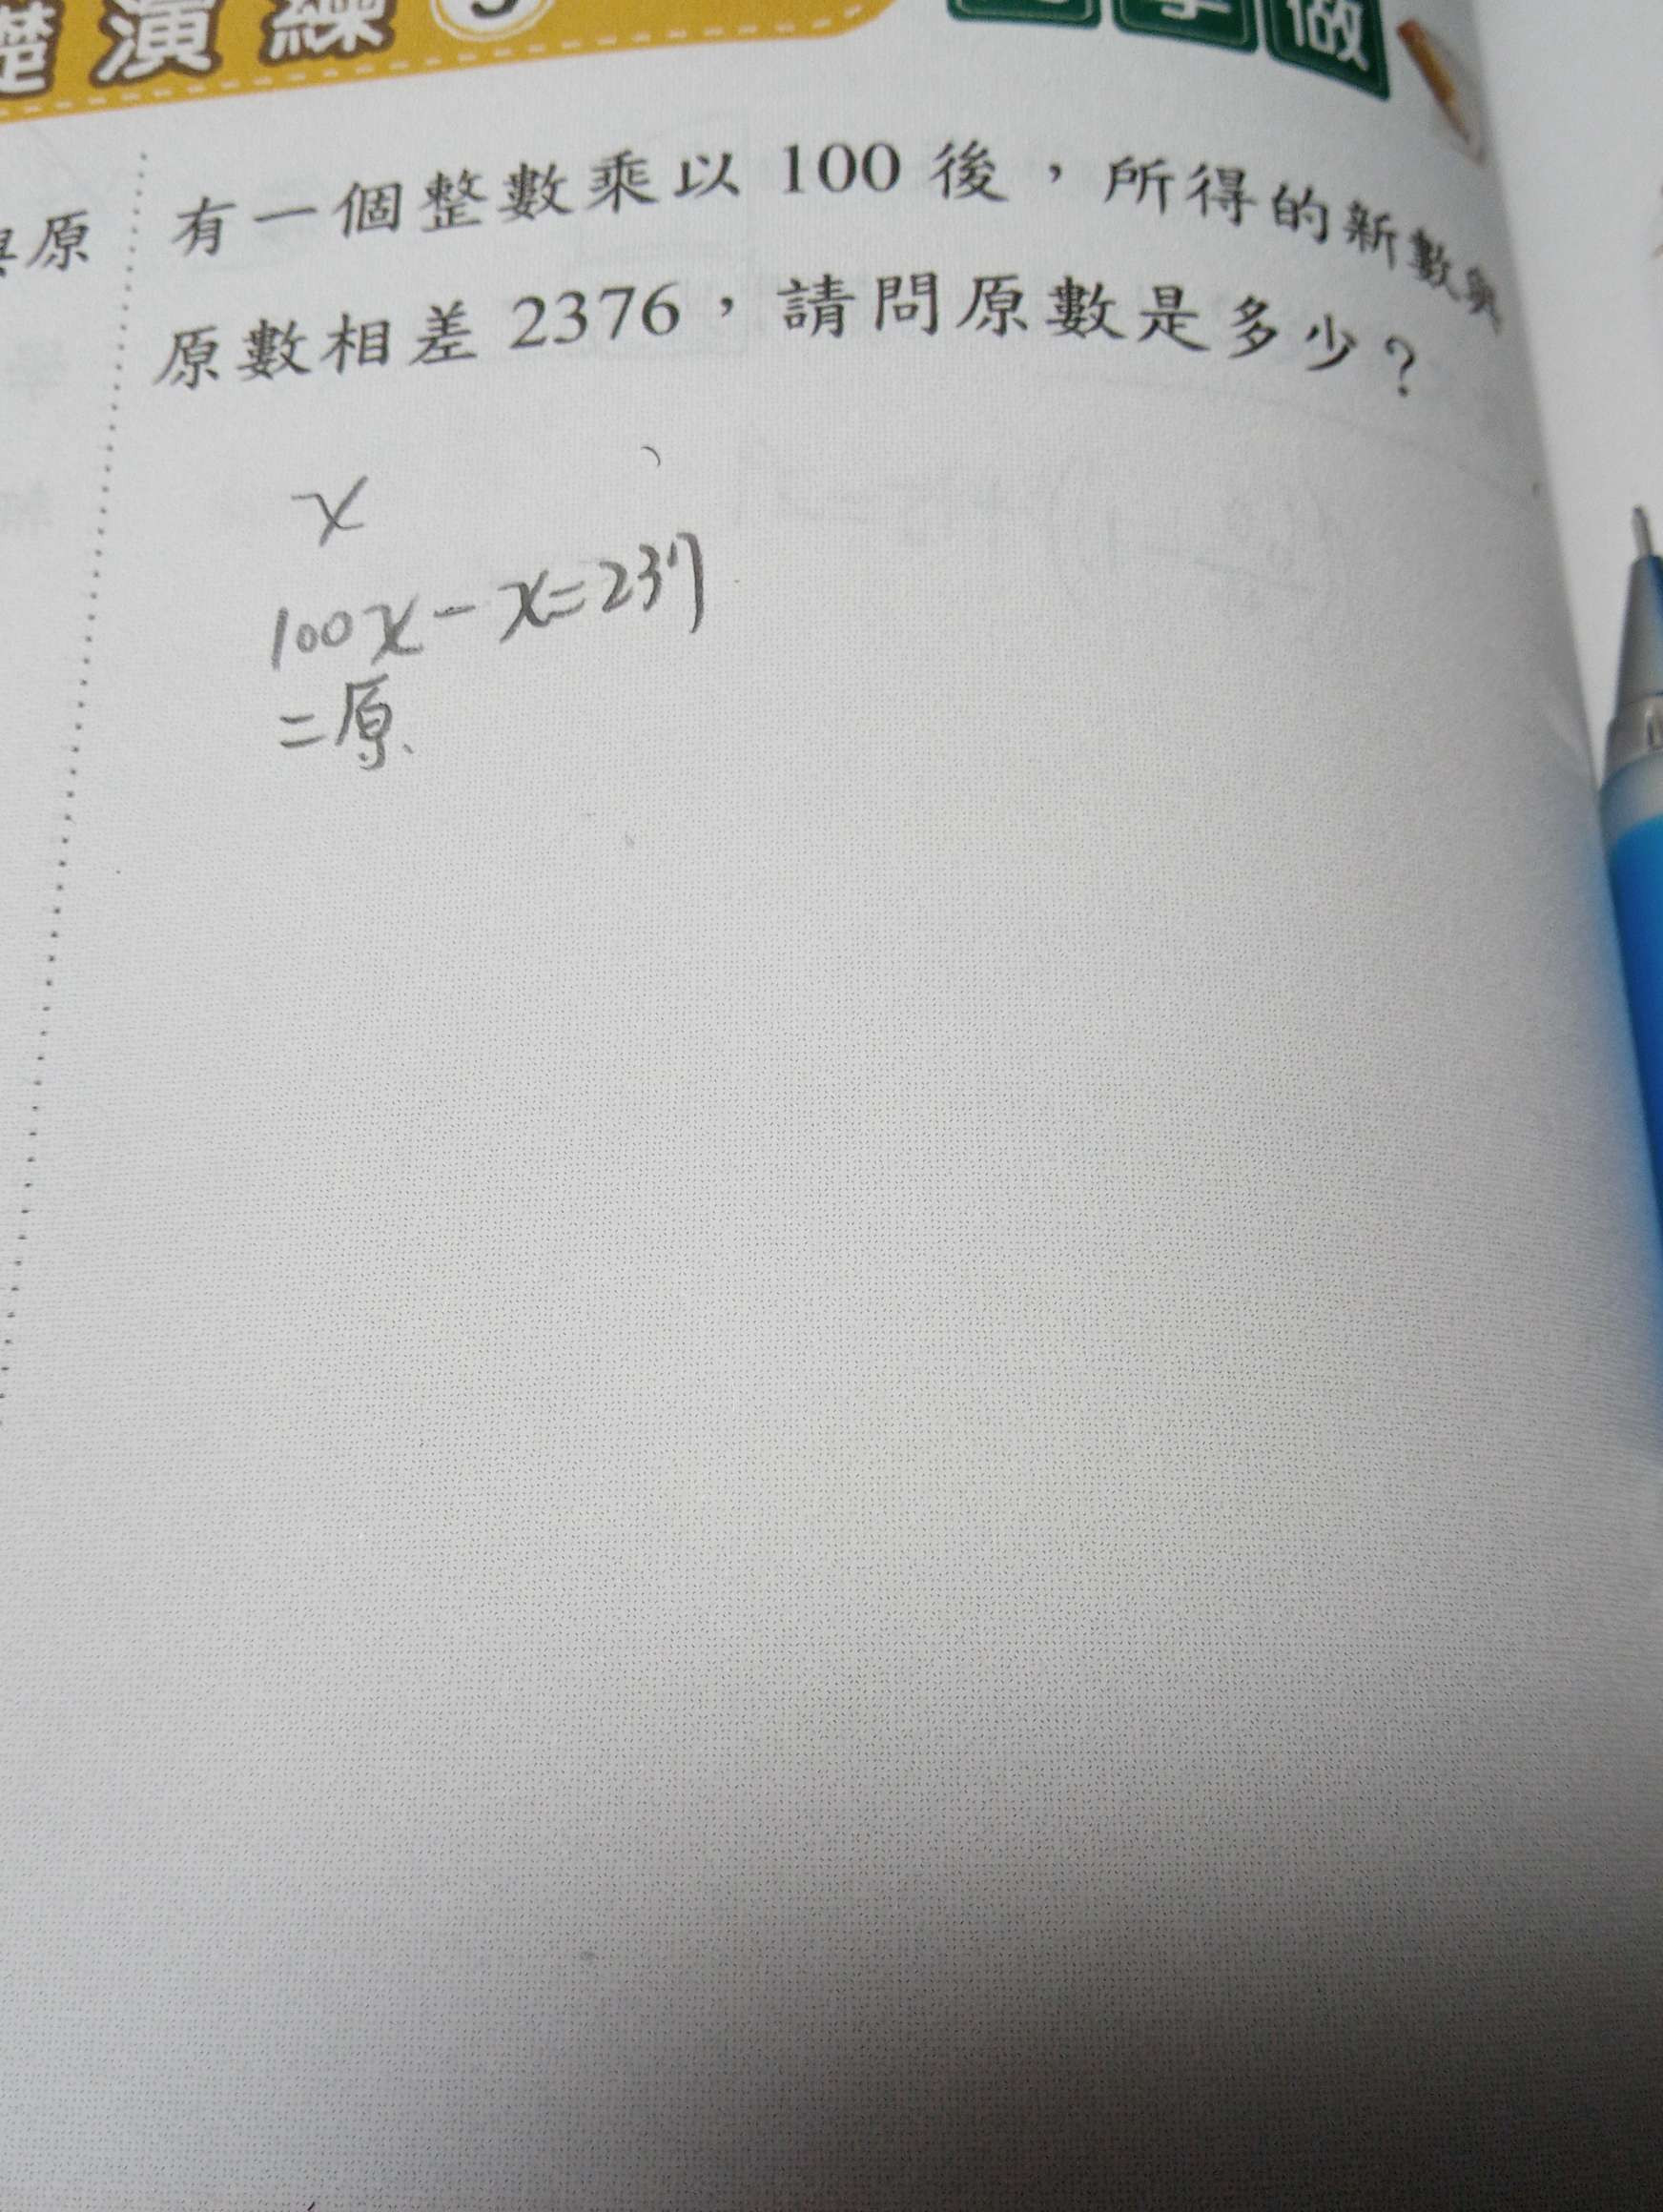 礎演練
做
有一個整數乘以 100 後，所得的新數與
原
原數相差 2376，請問原數是多少？
x
100x-x=237
=原